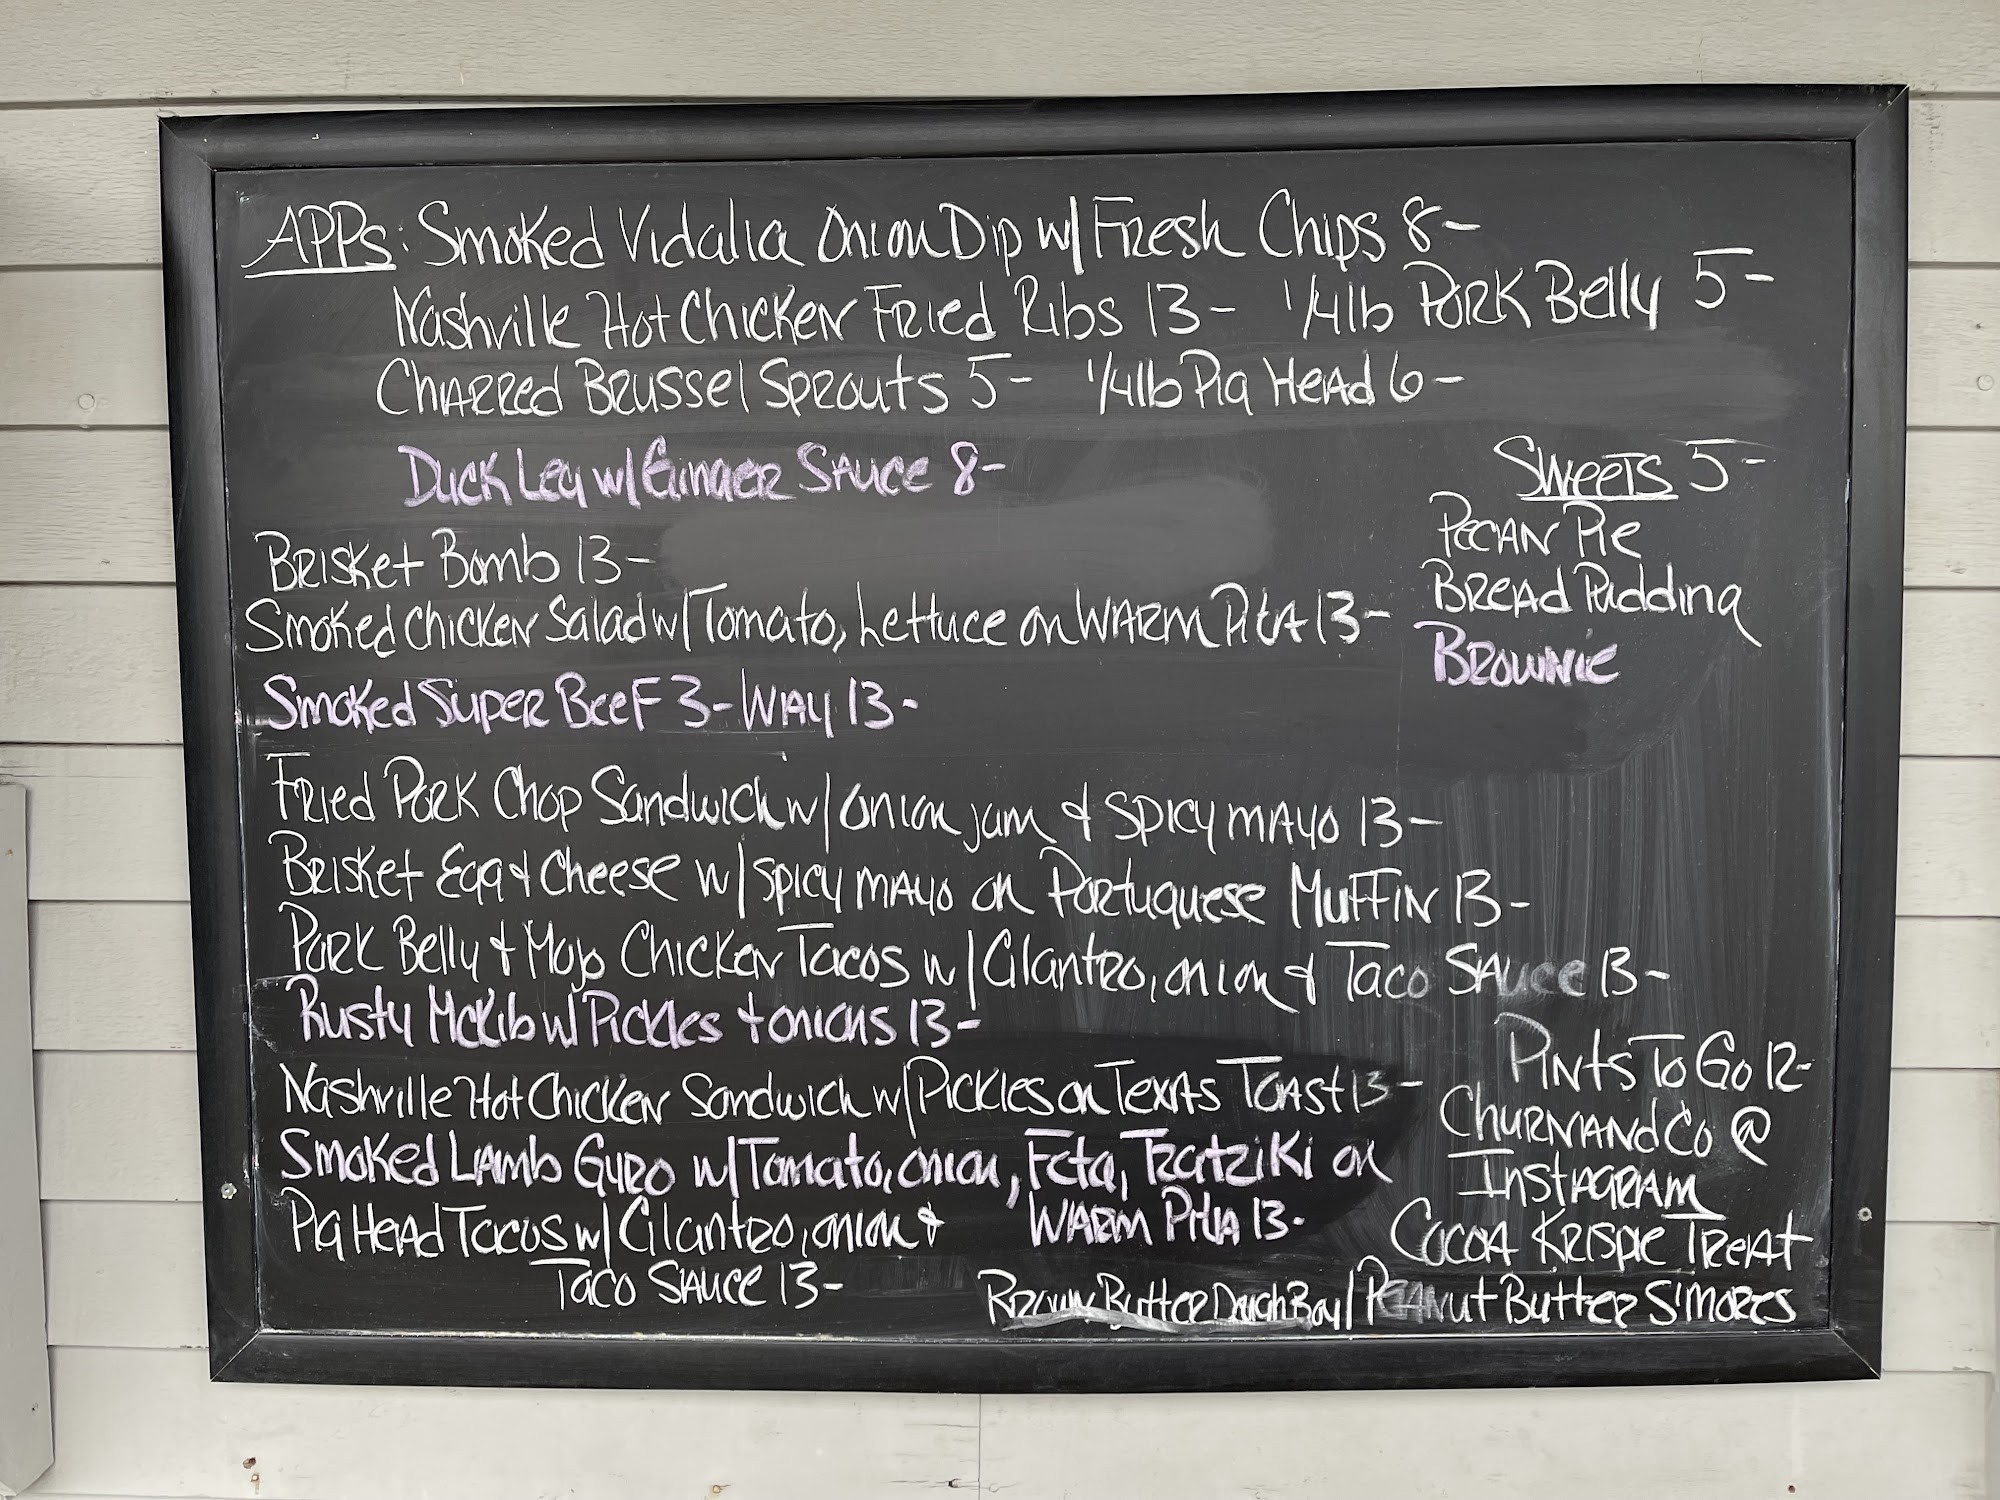 APPs: Smoked Vidalia Onion Dip w/ Fresh Chips 8-
Nashville Hot Chicken Fried Ribs 13- 1/4lb Pork Belly 5-
Charred Brussel Sprouts 5- 1/4lb Pig Head 6-
Duck Leg w/ Ginger Sauce 8-
Sweets 5-
Pecan Pie
Bread Pudding
Brownie
Brisket Bomb 13-
Smoked Chicken Salad w/ Tomato, Lettuce on Warm Pita 13-
Smoked Super Beef 3-Way 13-
Fried Pork Chop Sandwich w/ onion jam & spicy mayo 13-
Brisket Egg & Cheese w/ spicy mayo on Portuguese Muffin 13-
Pork Belly & Mojo Chicken Tacos w/ Cilantro, onion & Taco Sauce 13-
Rusty McRib w/ Pickles & onions 13-
Nashville Hot Chicken Sandwich w/ Pickles on Texas Toast 13-
Smoked Lamb Gyro w/ Tomato, onion, Feta, Tzatziki on
Warm Pita 13-
Pig Head Tacos w/ Cilantro, onion &
Taco Sauce 13-
Pints To Go 12-
ChurnandCo @
Instagram
Cocoa Krispie Treat
Brown Butter Dough Boy / Peanut Butter S'mores